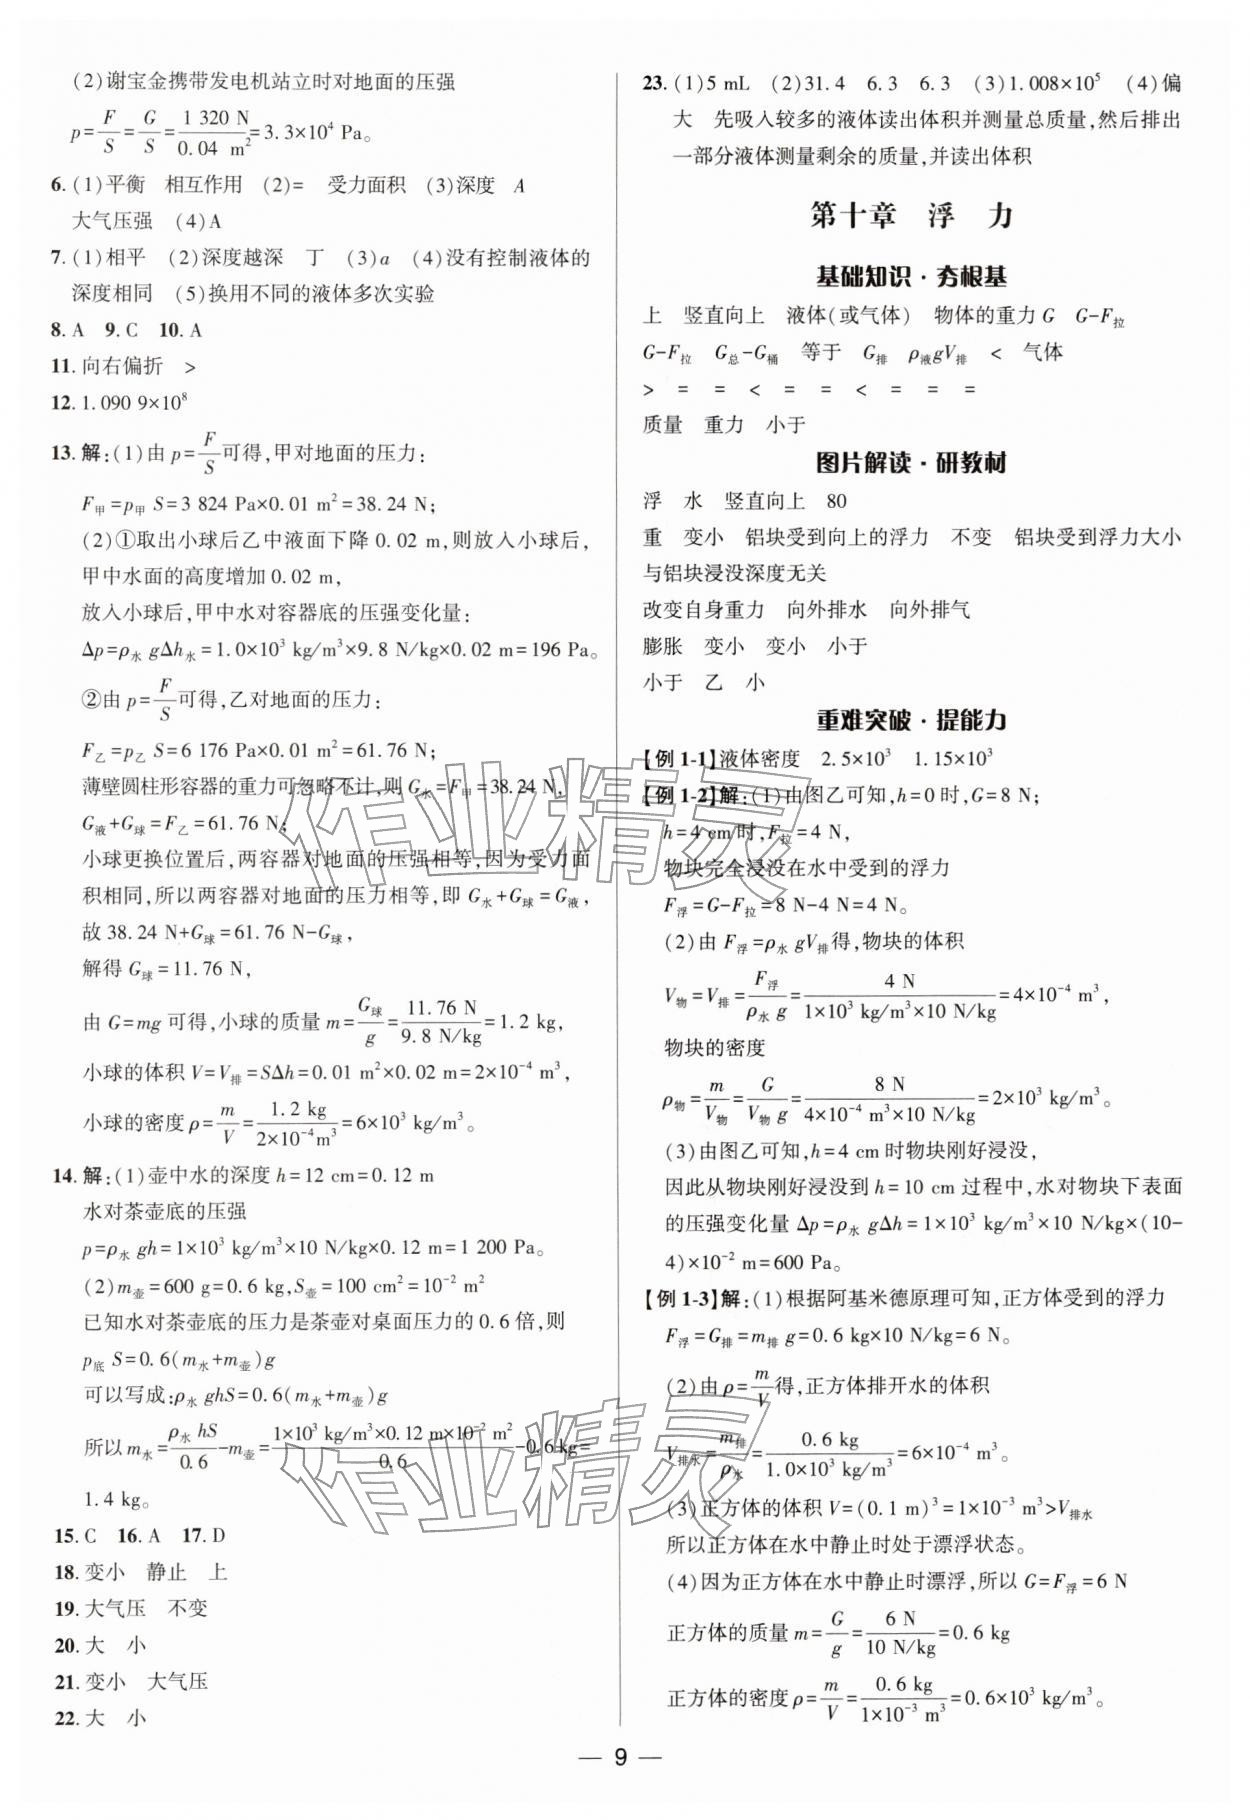 (2)谢宝金携带发电机站立时对地面的压强
p=F/S=G/S=1 320 N/0.04 m²=3.3×10⁴ Pa。
6.(1)平衡 相互作用 (2)= 受力面积 (3)深度 A
大气压强 (4)A
7.(1)相平 (2)深度越深 丁 (3)a (4)没有控制液体的
深度相同 (5)换用不同的液体多次实验
8.A 9.C 10.A
11.向右偏折 >
12.1.090 9×10⁸
13.解:(1)由 p=F/S可得,甲对地面的压力:
F甲=p甲 S=3 824 Pa×0.01 m²=38.24 N;
(2)①取出小球后乙中液面下降 0.02 m,则放入小球后,
甲中水面的高度增加 0.02 m,
放入小球后,甲中水对容器底的压强变化量:
Δp=ρ水 gΔh水=1.0×10³ kg/m³×9.8 N/kg×0.02 m=196 Pa。
②由 p=F/S可得,乙对地面的压力:
F乙=p乙 S=6 176 Pa×0.01 m²=61.76 N;
薄壁圆柱形容器的重力可忽略不计,则 G水=F甲=38.24 N,
G液+G球=F乙=61.76 N;
小球更换位置后,两容器对地面的压强相等,因为受力面
积相同,所以两容器对地面的压力相等,即 G水+G球=G液,
故 38.24 N+G球=61.76 N-G球,
解得 G球=11.76 N,
由 G=mg 可得,小球的质量 m=G球/g=11.76 N/9.8 N/kg=1.2 kg,
小球的体积 V=V排=SΔh=0.01 m²×0.02 m=2×10⁻⁴ m³,
小球的密度 ρ=m/V=1.2 kg/2×10⁻⁴m³=6×10³ kg/m³。
14.解:(1)壶中水的深度 h=12 cm=0.12 m
水对茶壶底的压强
p=ρ水 gh=1×10³ kg/m³×10 N/kg×0.12 m=1 200 Pa。
(2)m壶=600 g=0.6 kg,S壶=100 cm²=10⁻² m²
已知水对茶壶底的压力是茶壶对桌面压力的 0.6 倍,则
p底 S=0.6(m水+m壶)g
可以写成:ρ水 ghS=0.6(m水+m壶)g
所以 m水=ρ水 hS/0.6-m壶=1×10³ kg/m³×0.12 m×10⁻² m²/0.6-0.6 kg=
1.4 kg。
15.C 16.A 17.D
18.变小 静止 上
19.大气压 不变
20.大 小
21.变小 大气压
22.大 小
23.(1)5 mL (2)31.4 6.3 6.3 (3)1.008×10⁵ (4)偏
大 先吸入较多的液体读出体积并测量总质量,然后排出
一部分液体测量剩余的质量,并读出体积
第十章 浮 力
基础知识·夯根基
上 竖直向上 液体(或气体) 物体的重力 G G-F拉
G-F拉 G总-G桶 等于 G排 ρ液gV排 < 气体
> = = < = = < = = =
质量 重力 小于
图片解读·研教材
浮 水 竖直向上 80
重 变小 铝块受到向上的浮力 不变 铝块受到浮力大小
与铝块浸没深度无关
改变自身重力 向外排水 向外排气
膨胀 变小 变小 小于
小于 乙 小
重难突破·提能力
【例 1-1】液体密度 2.5×10³ 1.15×10³
【例 1-2】解:(1)由图乙可知,h=0 时,G=8 N;
h=4 cm时,F拉=4 N,
物块完全浸没在水中受到的浮力
F浮=G-F拉=8 N-4 N=4 N。
(2)由 F浮=ρ水 gV排得,物块的体积
V物=V排=F浮/ρ水 g=4 N/1×10³ kg/m³×10 N/kg=4×10⁻⁴ m³,
物块的密度
ρ物=m/V物=G/V物 g=8 N/4×10⁻⁴ m³×10 N/kg=2×10³ kg/m³。
(3)由图乙可知,h=4 cm 时物块刚好浸没,
因此从物块刚好浸没到 h=10 cm 过程中,水对物块下表面
的压强变化量 Δp=ρ水 gΔh=1×10³ kg/m³×10 N/kg×(10-
4)×10⁻² m=600 Pa。
【例 1-3】解:(1)根据阿基米德原理可知,正方体受到的浮力
F浮=G排=m排 g=0.6 kg×10 N/kg=6 N。
(2)由 ρ=m/V得,正方体排开水的体积
V排水=m排/ρ水=0.6 kg/1.0×10³ kg/m³=6×10⁻⁴ m³。
(3)正方体的体积 V=(0.1 m)³=1×10⁻³ m³>V排水
所以正方体在水中静止时处于漂浮状态。
(4)因为正方体在水中静止时漂浮,所以 G=F浮=6 N
正方体的质量 m=G/g=6 N/10 N/kg=0.6 kg
正方体的密度 ρ=m/V=0.6 kg/1×10⁻³ m³=0.6×10³ kg/m³。
— 9 —
作业精灵
作业精灵